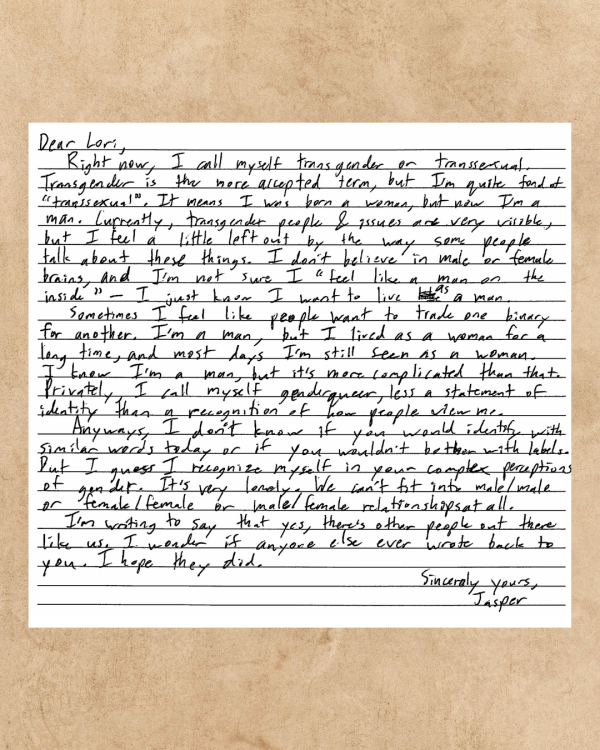 Dear Lori,
Right now, I call myself transgender or transsexual.
Transgender is the more accepted term, but I'm quite fond of
"transsexual". It means I was born a woman, but now I'm a
man. Currently, transgender people & issues are very visible,
but I feel a little left out by the way some people
talk about these things. I don't believe in male or female
brains, and I'm not sure I "feel like a man on the
inside" – I just know I want to live as a man.
Sometimes I feel like people want to trade one binary
for another. I'm a man, but I lived as a woman for a
long time, and most days I'm still seen as a woman.
I know I'm a man, but it's more complicated than that.
Privately, I call myself genderqueer, less a statement of
identity than a recognition of how people view me.
Anyways, I don't know if you would identify with
similar words today or if you wouldn't bother with labels.
But I guess I recognize myself in your complex perceptions
of gender. It's very lonely. We can't fit into male/male
or female/female or male/female relationships at all.
I'm writing to say that yes, there's other people out there
like us. I wonder if anyone else ever wrote back to
you. I hope they did.
Sincerely yours,
Jasper